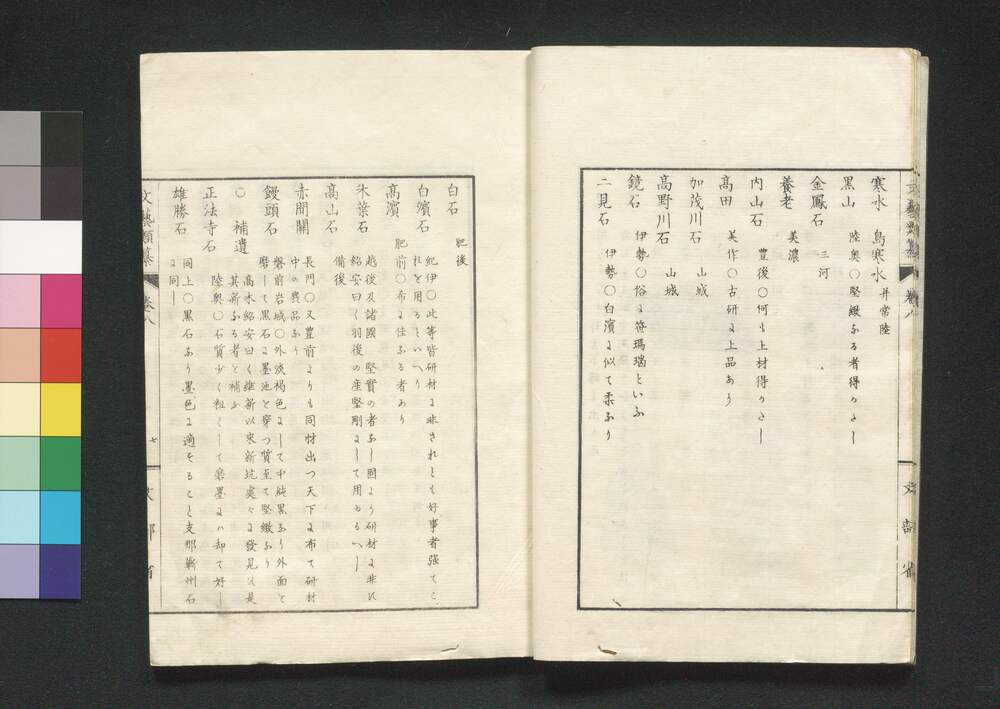 寒水 鳥寒水 并常陸
黒山 陸奥○堅緻ふる者得うたし
金鳳石 三河
養老 美濃
内山石 豊後○何も上材得うたし
高田 美作○古研に上品あり
加茂川石 山城
高野川石 山城
鏡石 伊勢○俗に笹瑪瑙といふ
二見石 伊勢○白濱に似て柔ふり
文藝類纂 巻八
文部省
白石 肥後
白濱石 紀伊○此等皆研材に非されとも好事者強てこ
れを用るといへり
高濱 肥前○布に佳ふる者あり
木葉石 越後及諸國 堅實の者ふし圓より研材に非ス
紹安曰く羽後の産堅剛にして用ゐるへし
高山石 備後
赤間關 長門○又豊前よりも同材出つ天下に布て研材
中の異品ふり
饅頭石 磐前岩城○外淡褐色にして中純黒ふり外面を
磨して黒石に墨池を穿つ質至て堅緻ふり
○補遺 高木紹安曰く維新以來新坑處々に發見ス是
其新ふる者を補ふ
正法寺石 陸奥○石質少く粗くして磨墨にハ却て好し
雄勝石 同上○黒石ふり墨色に適そること支那蘄州石
に同し
文藝類纂 巻八 七 文部省